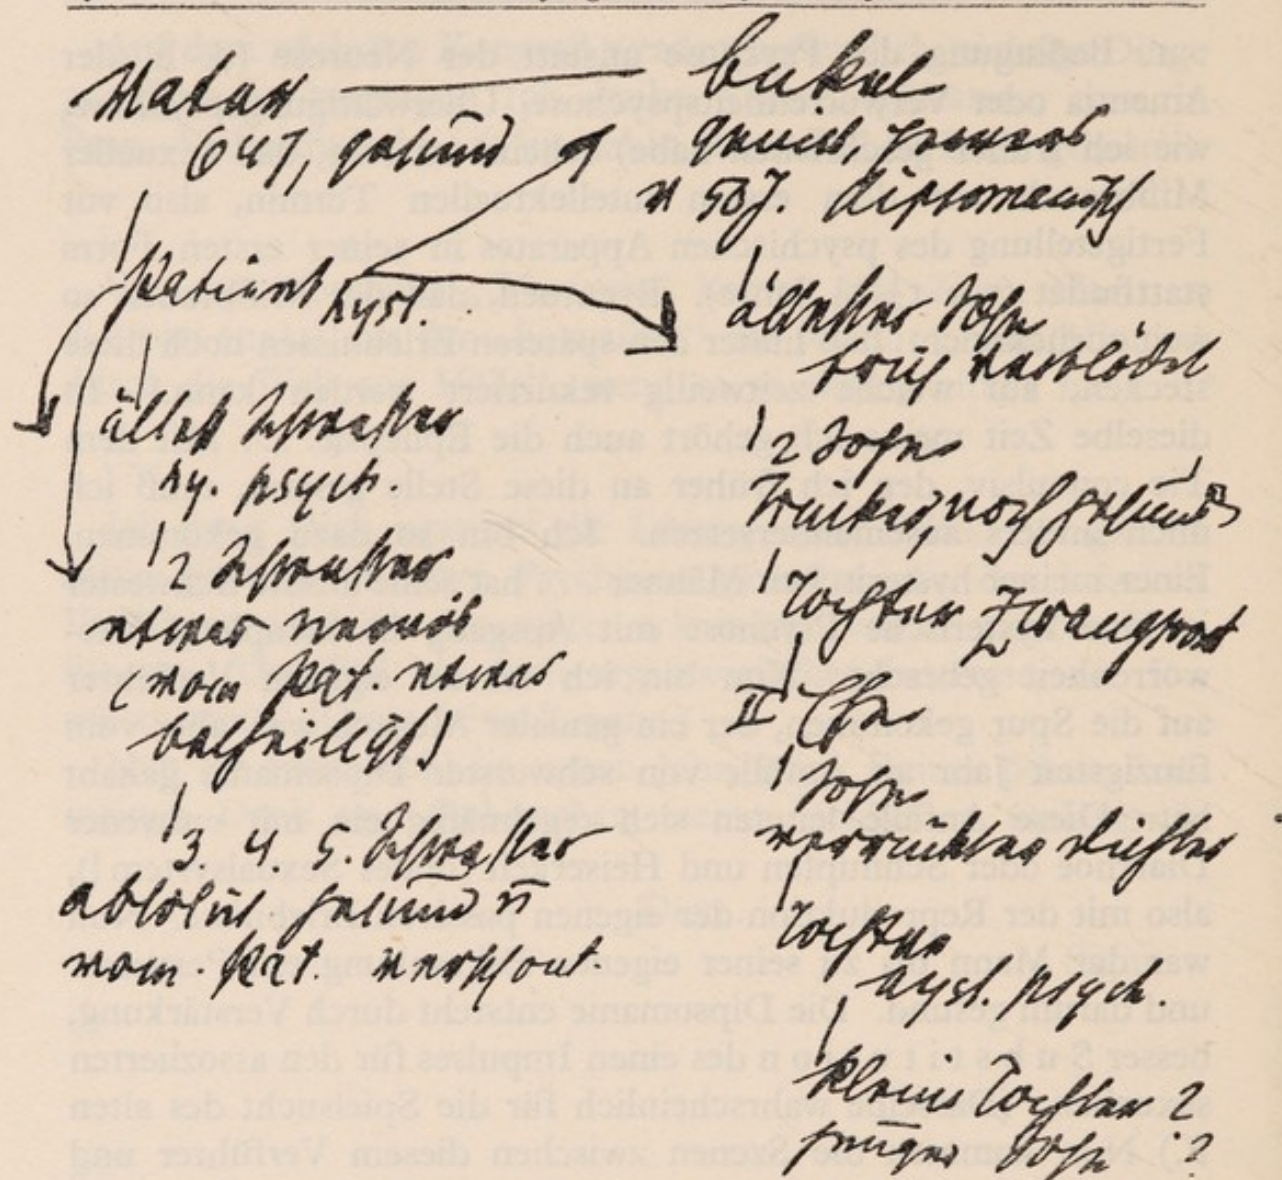 Vater
64 J, gesund
Patient
hyst.
älteste Schwester
hy. psych
2 Schwester
etwas nervös
(vom Pat. etwas
betheiligt)
3 4 5. Schwester
absolut gesund u
vom Pat. verschont.
Onkel
genial, pervers
v 50 J. dipsomanisch
ältester Sohn
früh verblödet
2 Sohn
Trinker, noch gesund
Tochter
II Ehe
Sohn
verrückter Dichter
Tochter
hyst. Psych.
kleine Tochter ?
junger Sohn ?